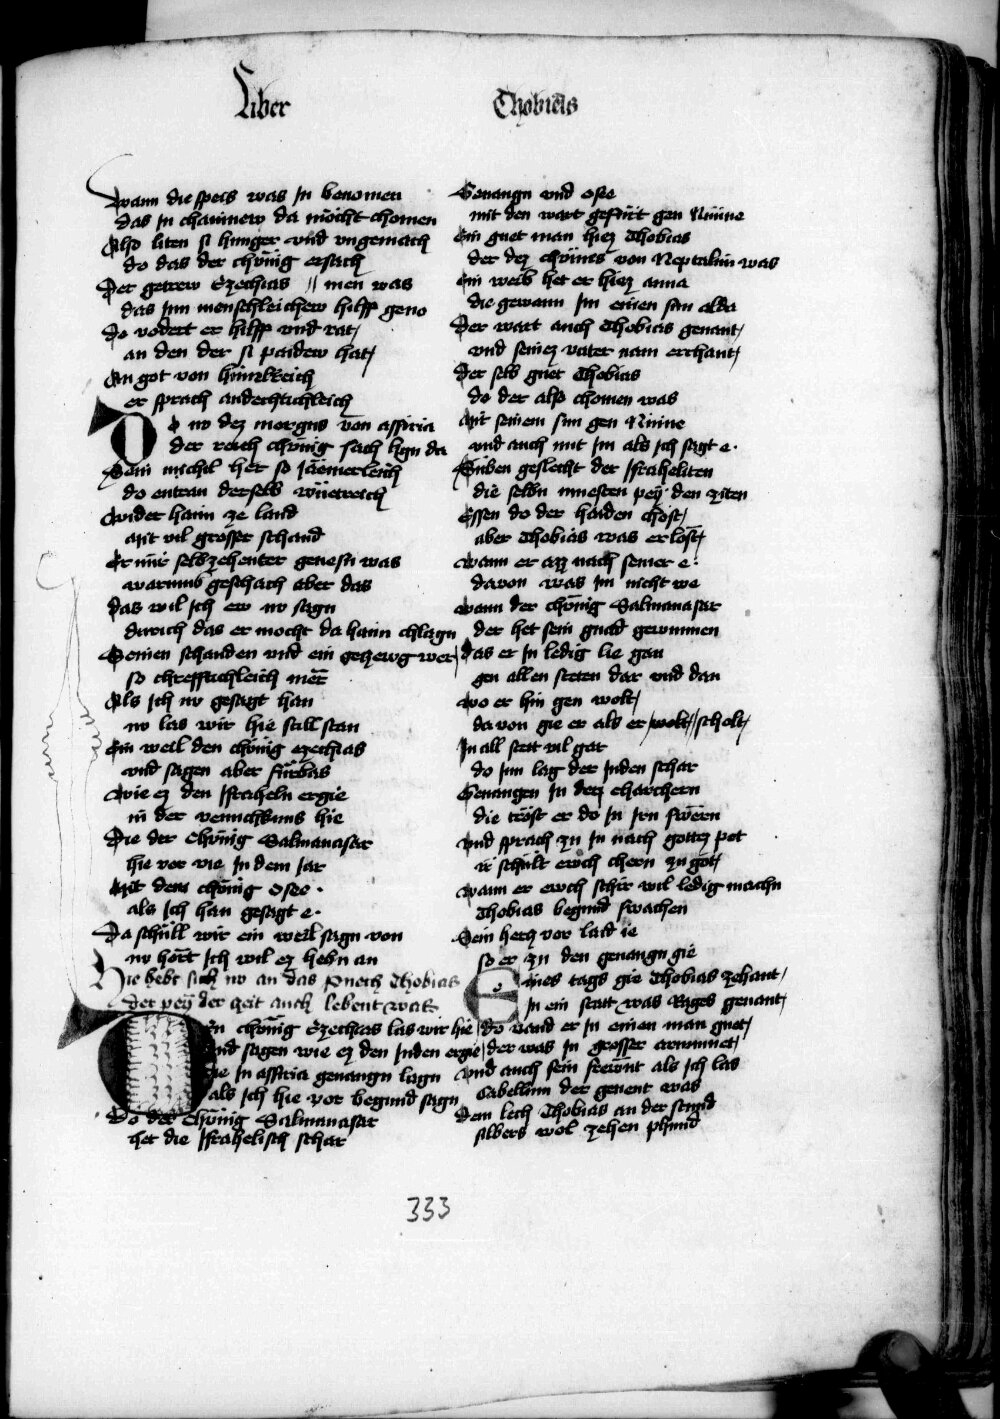 Liber Thobias
Wann die speis was in benomen
das in chainew da möcht chomen
Also liten si hunger vnd vngemach
do das der chönig ersach
Der getrew Ezechias // men was
das im menschleichew hilff geno
Do vodert er hilff vnd rat
an den der si paidew hat
An got von himelreich
er sprach andechtichleich
Do no dez morgns von assiria
der reich chönig sach lign da
Sein michel her so jäemerleich
do entran derselb wüetreich
Wider haim ze land
Mit vil grosser schand
Er nür selbzehenter genesn was
warumb geschach aber das
das wil ich ew no sagn
durich das er mocht da haim chlagn
Seinen schanden vnd ein gezewg wer
so chrefftichleich mer
Als ich no gesagt han
no las wir hie still stan
Ein weil den chönig ezechias
vnd sagen aber fürbas
Wie ez den Israheln ergie
in der vennchnuns hie
Die der chönig Salmanasar
hie vor vie in dem jar
Mit dem chönig Osee
als ich han gesagt e
Da schüll wir ein weil sagn von
no hört ich wil ez hebn an
Hie hebt sich no an das puech Thobias
der pey der zeit auch lebent was
Den chönig Ezechias las wir hie
vnd sagen wie ez den Juden ergie
Die in assiria geuangn lagn
als ich hie vor begund sagn
Do der chönig Salmanasar
het die Israhelisch schar
Geuangn vnd Osee
mit den wart gefürt gen Niniue
Ein guet man hiez Thobias
der dez chünns von Neptalim was
Ein weib het er hiez anna
die gewann im einen sun alda
Der wart auch Thobias genant
vnd seinez vater nam erchant
Der selb guet Thobias
do der also chomen was
Mit seinem sun gen Niniue
vnd auch mit im als ich sagt e
Siben geslecht der Israheliten
die selbn muesten pey den ziten
Essen do der haiden chost
aber Thobias was erlost
wann er azz nach seiner e
davon was im nicht we
wann der chönig Salmanasar
der het sein gnad gewunnen
das er in ledig lie gan
gen allen steten dar vnd dan
wo er hin gen wolt
davon gie er als er wolt // scholt
In all stett vil gar
do inn lag der Juden schar
Geuangen in dez charchern
die tröst er do in irn swërn
vnd sprach zu in nach gottez pet
ir schült ewch chern zu got
wann er ewch schir wil ledig machn
Thobias begund swachen
Sein herz vor laid ie
so er zu den geuangn gie
Eines tags gie Thobias zehant
In ein statt was Rages genant
do vand er in einen man guet
der was in grosser armuuet
vnd auch sein freunt als ich las
Gabellum der genent was
Dem lech Thobias an der stund
silbers wol zehen phund
333